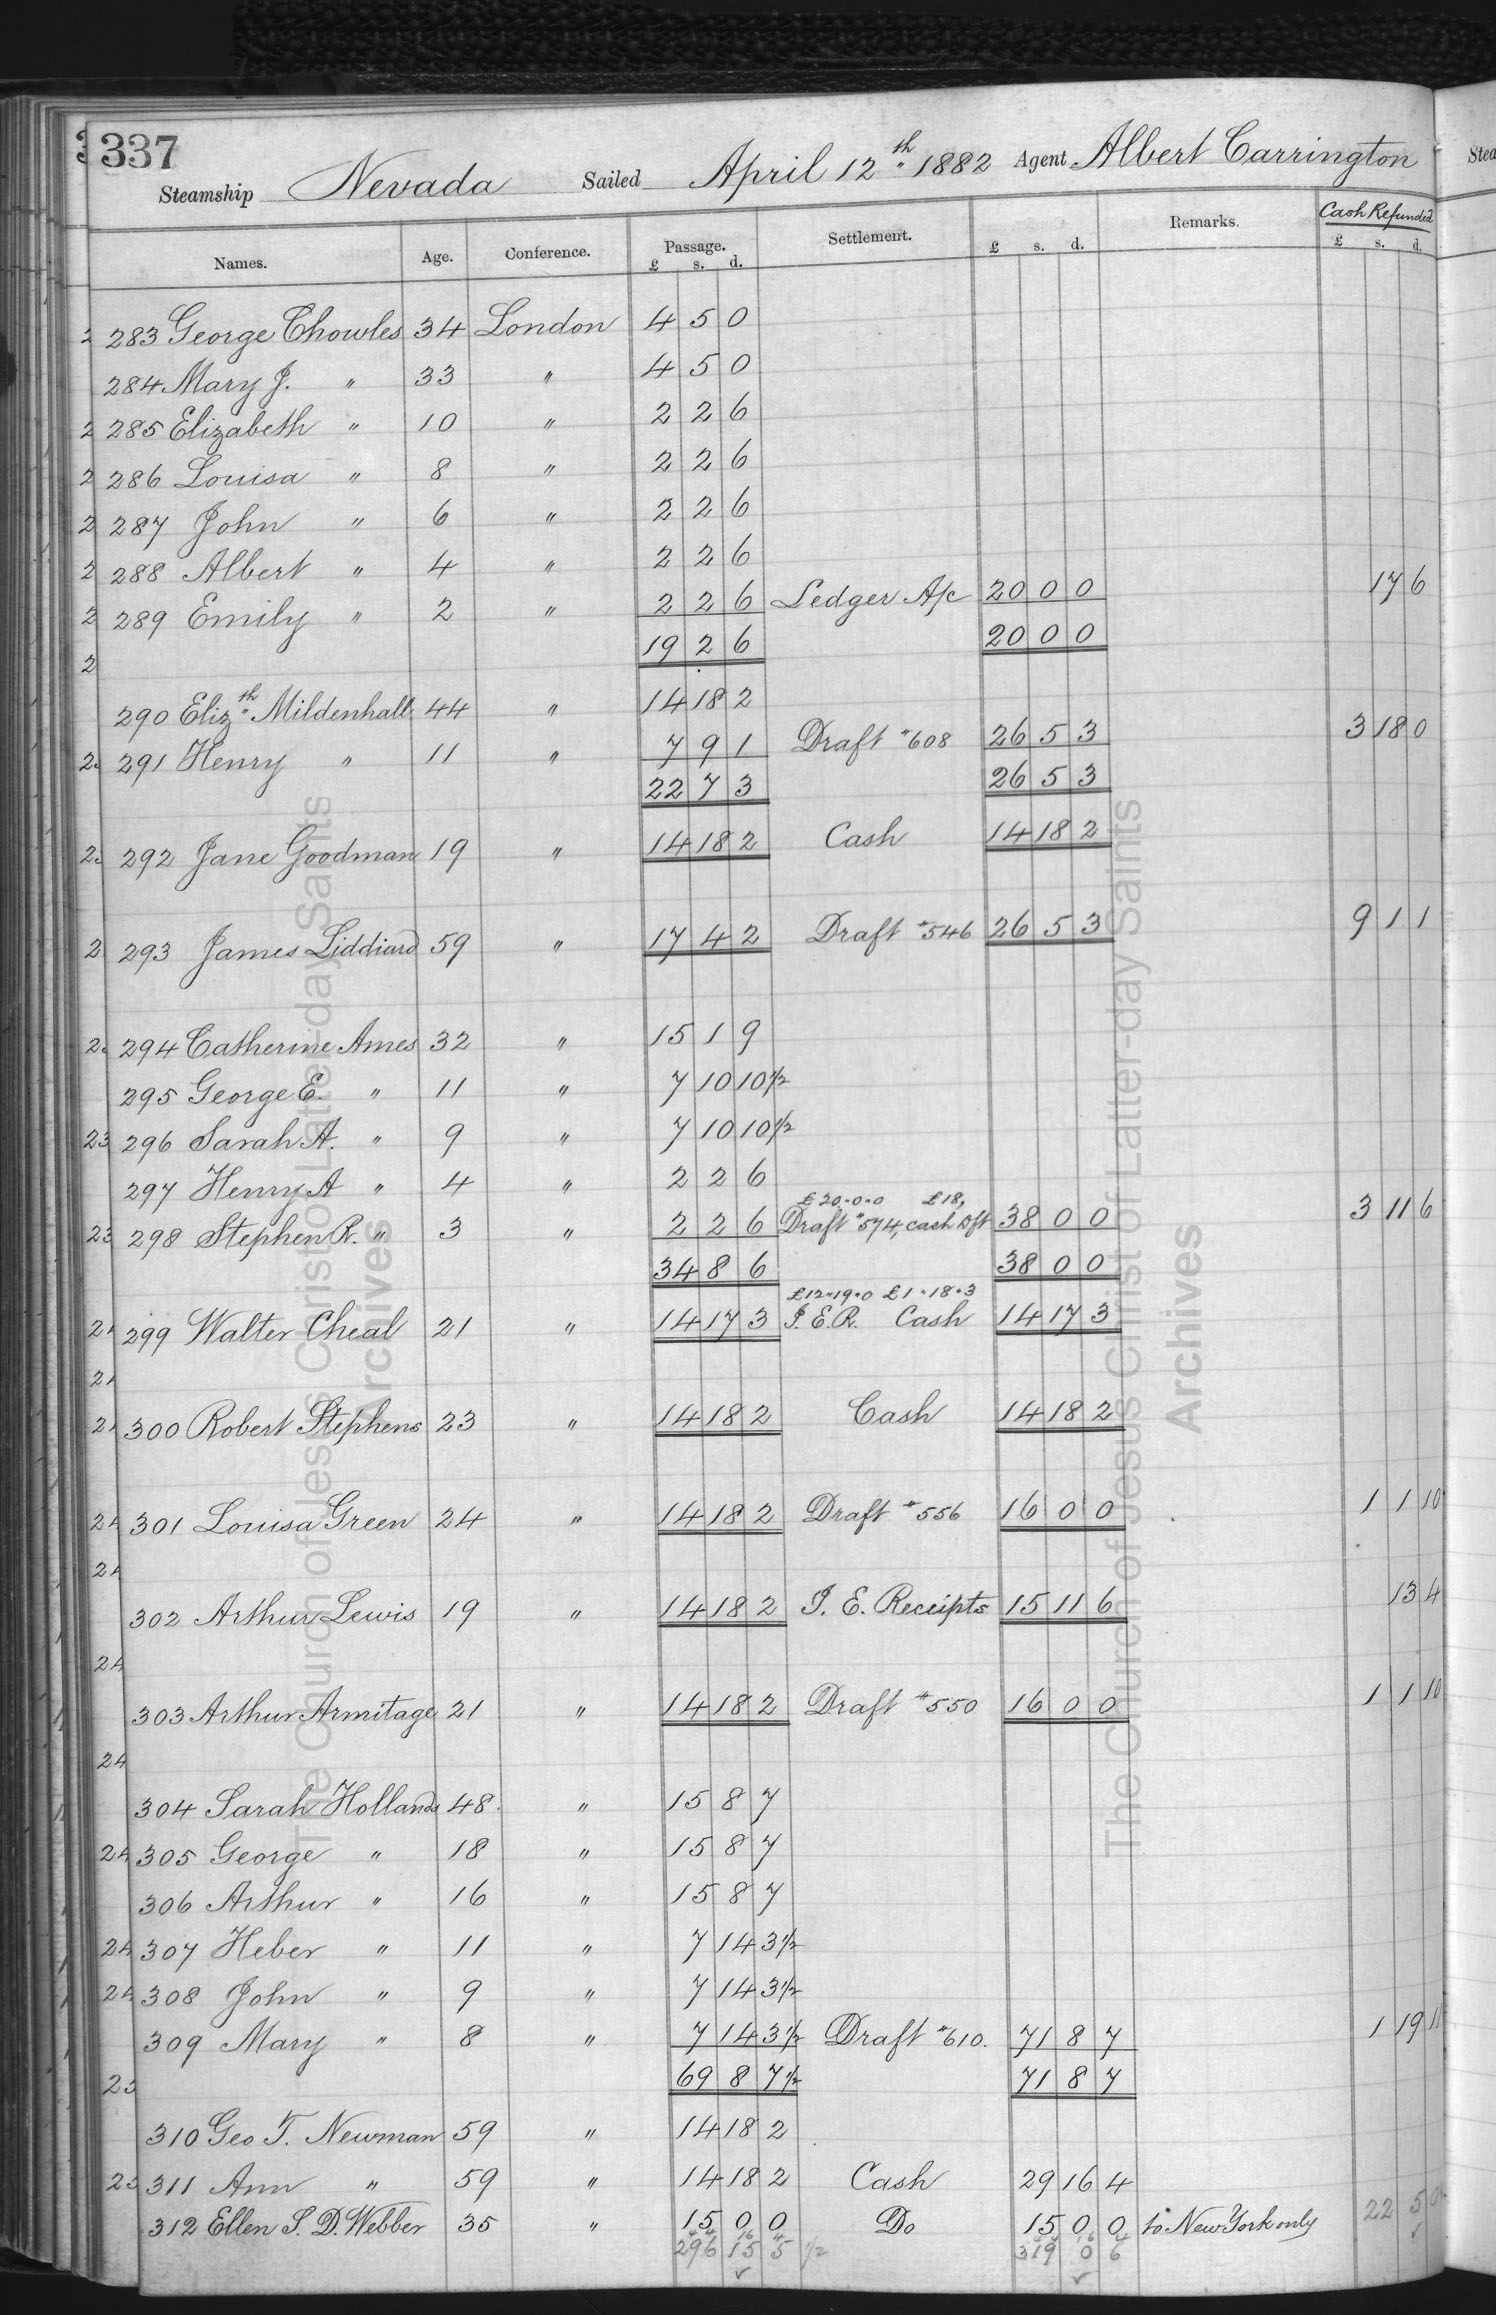 337
Steamship Nevada Sailed April 12th 1882 Agent Albert Carrington
Names. Age. Conference. Passage. Settlement. £ s. d. Remarks. Cash Refunded
£ s. d. £ s. d.
283 George Chowles 34 London 4 5 0
284 Mary J. " 33 " 4 5 0
285 Elizabeth " 10 " 2 2 6
286 Louisa " 8 " 2 2 6
287 John " 6 " 2 2 6
288 Albert " 4 " 2 2 6
289 Emily " 2 " 2 2 6 Ledger A/c 20 0 0 17 6
19 2 6 20 0 0
290 Elizth Mildenhall 44 " 14 18 2
291 Henry " 11 " 7 9 1 Draft #608 26 5 3 3 18 0
22 7 3 26 5 3
292 Jane Goodman 19 " 14 18 2 Cash 14 18 2
293 James Liddiard 59 " 17 4 2 Draft #546 26 5 3 9 1 1
294 Catherine Ames 32 " 15 1 9
295 George E. " 11 " 7 10 10½
296 Sarah A. " 9 " 7 10 10½
297 Henry A " 4 " 2 2 6
£20.0.0 £18,
298 Stephen R. " 3 " 2 2 6 Draft #574, cash Dft 38 0 0 3 11 6
34 8 6 38 0 0
£12.19.0 £1.18.3
299 Walter Cheal 21 " 14 17 3 I.E.R. Cash 14 17 3
300 Robert Stephens 23 " 14 18 2 Cash 14 18 2
301 Louisa Green 24 " 14 18 2 Draft #556 16 0 0 1 1 10
302 Arthur Lewis 19 " 14 18 2 I. E. Receipts 15 11 6 13 4
303 Arthur Armitage 21 " 14 18 2 Draft #550 16 0 0 1 1 10
304 Sarah Hollands 48 " 15 8 7
305 George " 18 " 15 8 7
306 Arthur " 16 " 15 8 7
307 Heber " 11 " 7 14 3½
308 John " 9 " 7 14 3½
309 Mary " 8 " 7 14 3½ Draft #610. 71 8 7 1 19 11
69 8 7½ 71 8 7
310 Geo T. Newman 59 " 14 18 2
311 Ann " 59 " 14 18 2 Cash 29 16 4
312 Ellen S. D. Webber 35 " 15 0 0 Do 15 0 0 to New York only 22 5
296 15 5 ½ 319 0 6
The Church of Jesus Christ of Latter-day Saints
Archives
The Church of Jesus Christ of Latter-day Saints
Archives